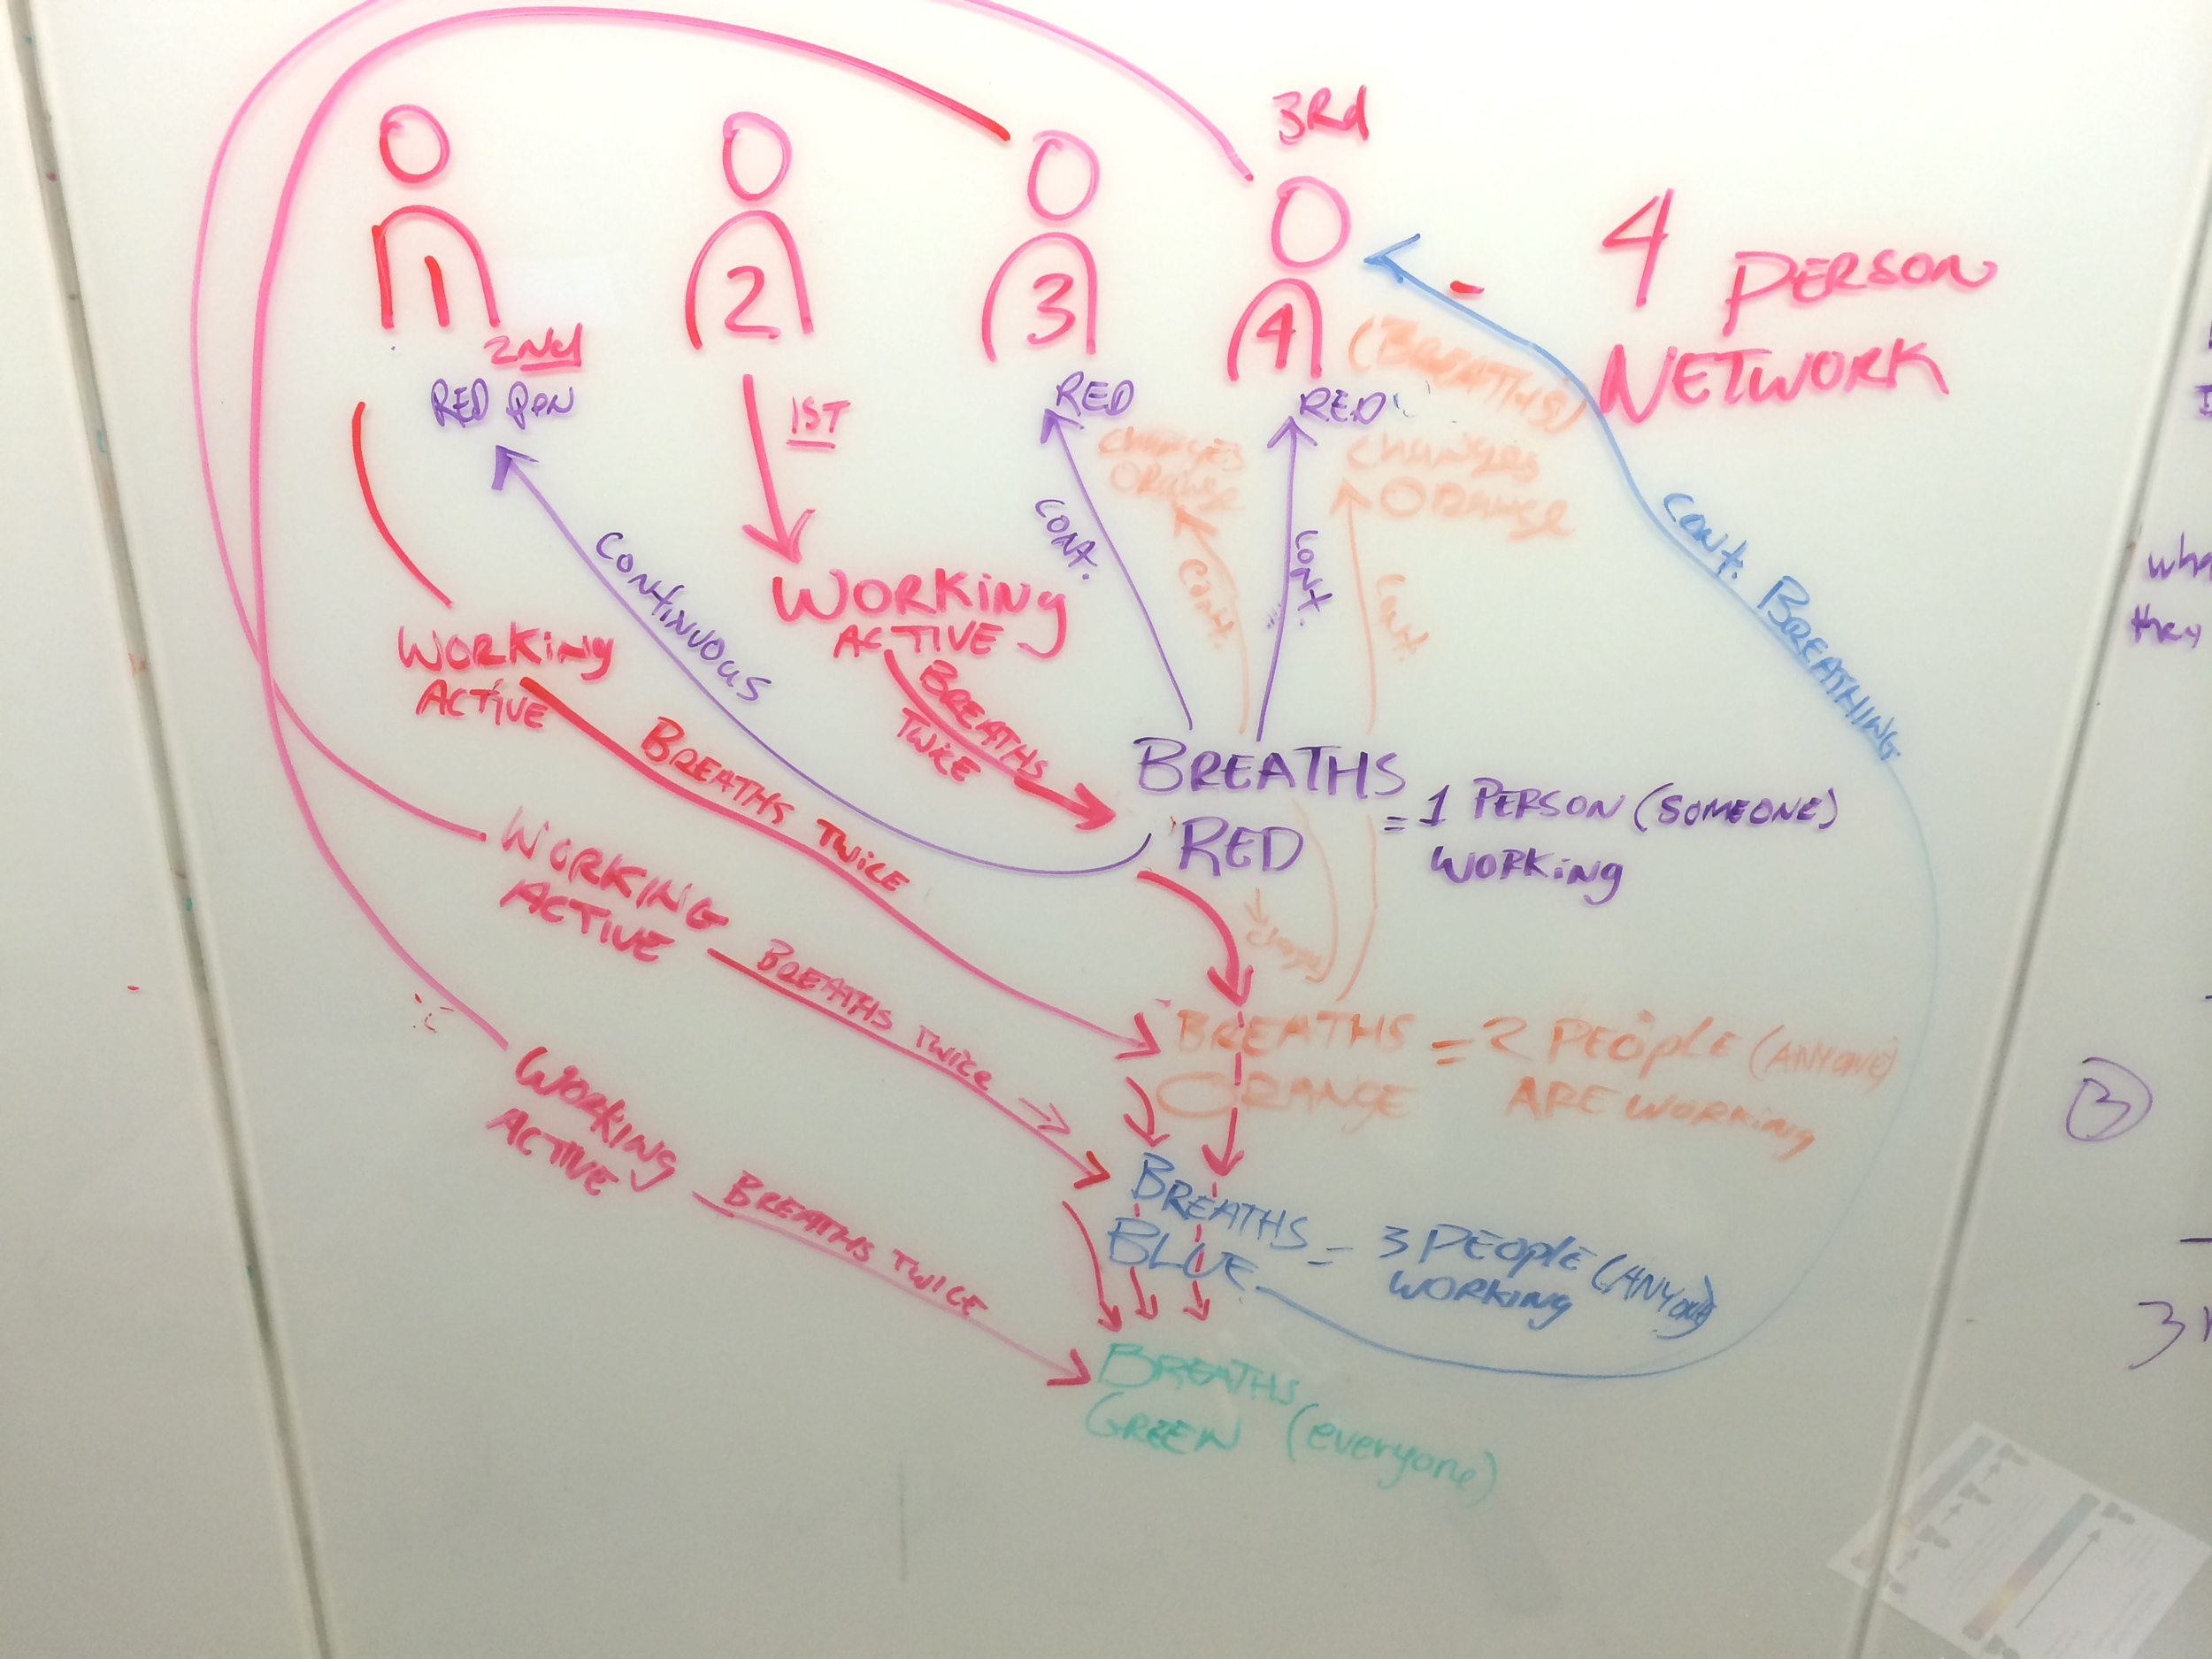 3Rd
1
2
3
4
4
PERSON
NETWORK
2Nd
RED
1ST
RED
RED
(BREATHS)
CHANGES
ORANGE
CHANGES
ORANGE
CONT.
CONT.
CONT.
CONT.
CONT. BREATHING
CONTINUOUS
WORKiNg
ACTIVE
WORKiNg
ACTiVE
BREATHS
TWiCE
BREATHS TWiCE
BREATHS
RED
= 1 PERSON (SOMEONE)
WORKiNg
WORKING
ACTIVE
BREATHS TWiCE
changes
BREATHS
ORANGE
= 2 PEOPlE (ANYONE)
ARE WORKiNg
WORKINg
ACTIVE
BREATHS TWICE
BREATHS
BLUE
= 3 PEOPlE (ANYONE)
WORKINg
BREATHS
GREEN (everyone)
they
3
3